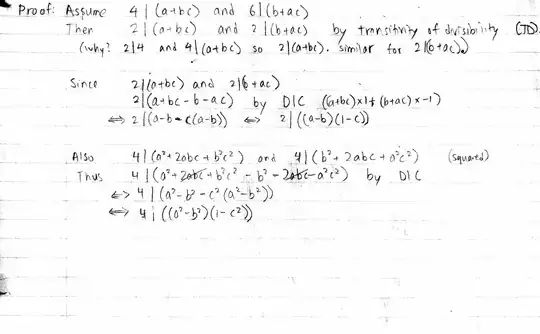 Proof: Assume 4 | (a+bc) and 6 | (b+ac)
Then 2 | (a+bc) and 2 | (b+ac) by transitivity of divisibility (TD).
(why? 2|4 and 4|(a+bc) so 2|(a+bc). similar for 2|(b+ac).)
Since 2 | (a+bc) and 2 | (b+ac)
2 | (a+bc-b-ac) by DIC ((a+bc)×1+(b+ac)×-1)
⇔ 2 | (a-b-c(a-b)) ⇔ 2 | ((a-b)(1-c))
Also 4 | (a²+2abc+b²c²) and 4 | (b²+2abc+a²c²) (squared)
Thus 4 | (a²+2abc+b²c²-b²-2abc-a²c²) by DIC
⇔ 4 | (a²-b²-c²(a²-b²))
⇔ 4 | ((a²-b²)(1-c²))